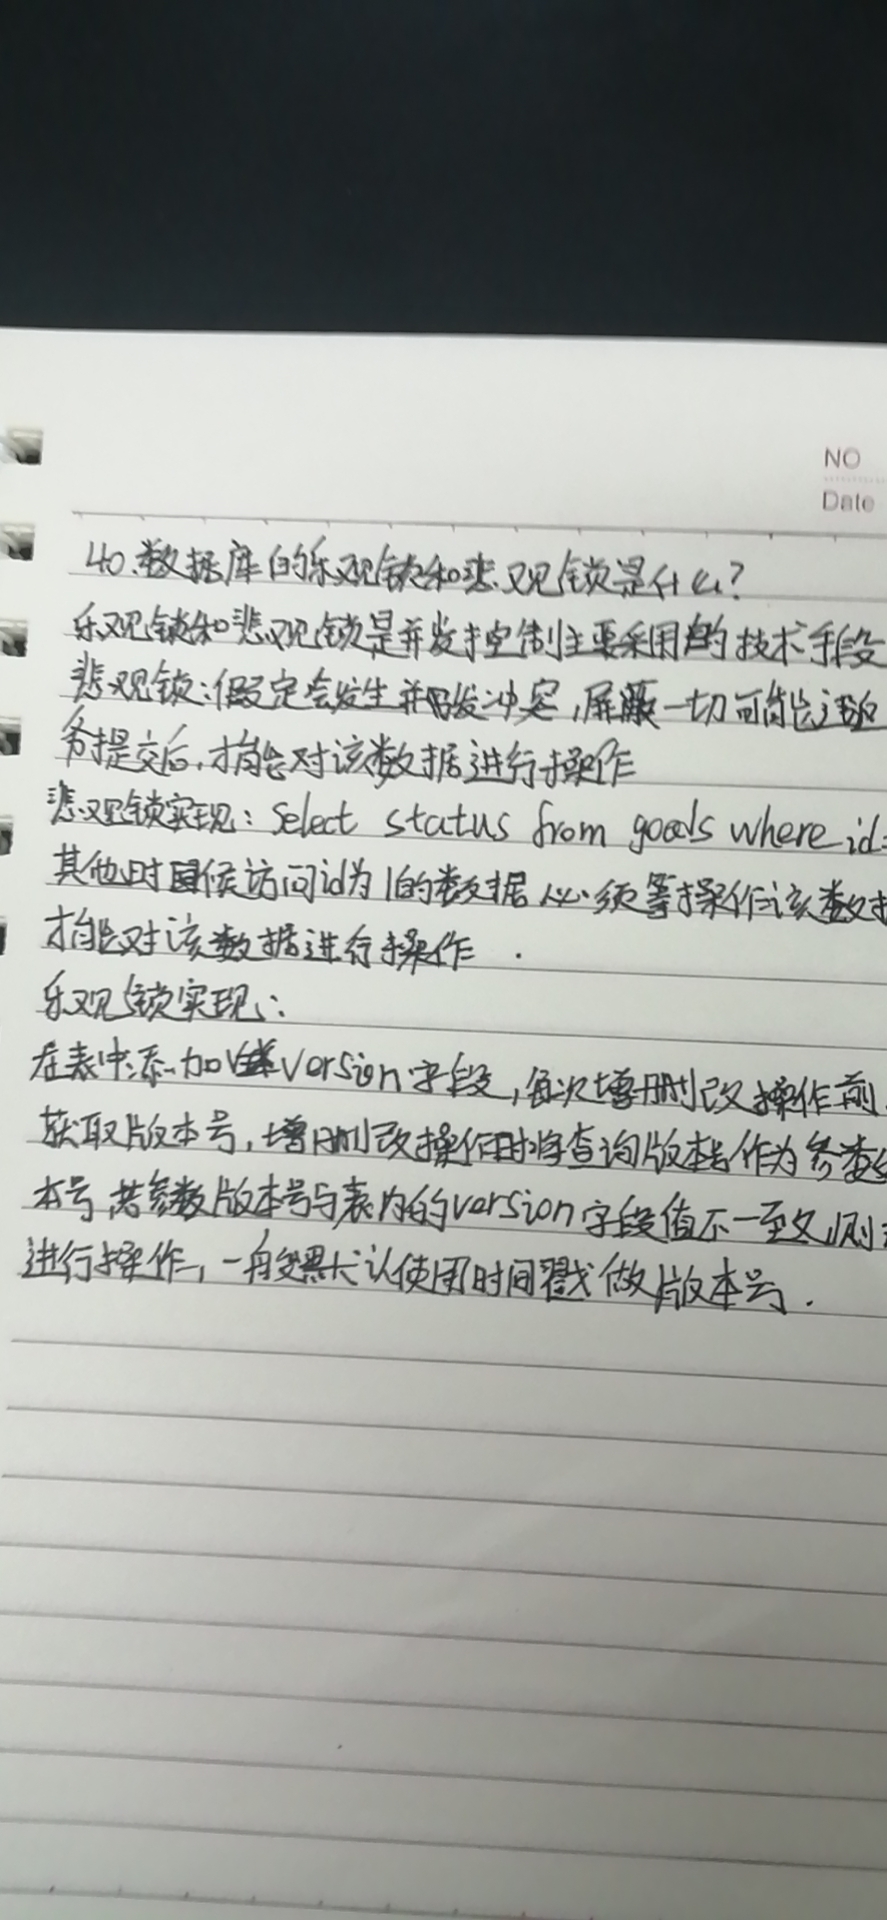 NO
Date
40.数据库的乐观锁和悲观锁是什么?
乐观锁和悲观锁是并发控制主要采用的技术手段
悲观锁:假设定会发生并发冲突,屏蔽一切可能违
务提交后,才能对该数据进行操作
悲观锁实现: Select status from goods where id=
其他时候访问id为1的数据必须等操作该数据
才能对该数据进行操作.
乐观锁实现:
在表中添加version字段,每次增删改操作前
获取版本号,增删改操作时将查询版本号作为参数
本号,若参数版本号与表内的version字段值不一致,则
进行操作,一般默认使用时间戳做版本号.